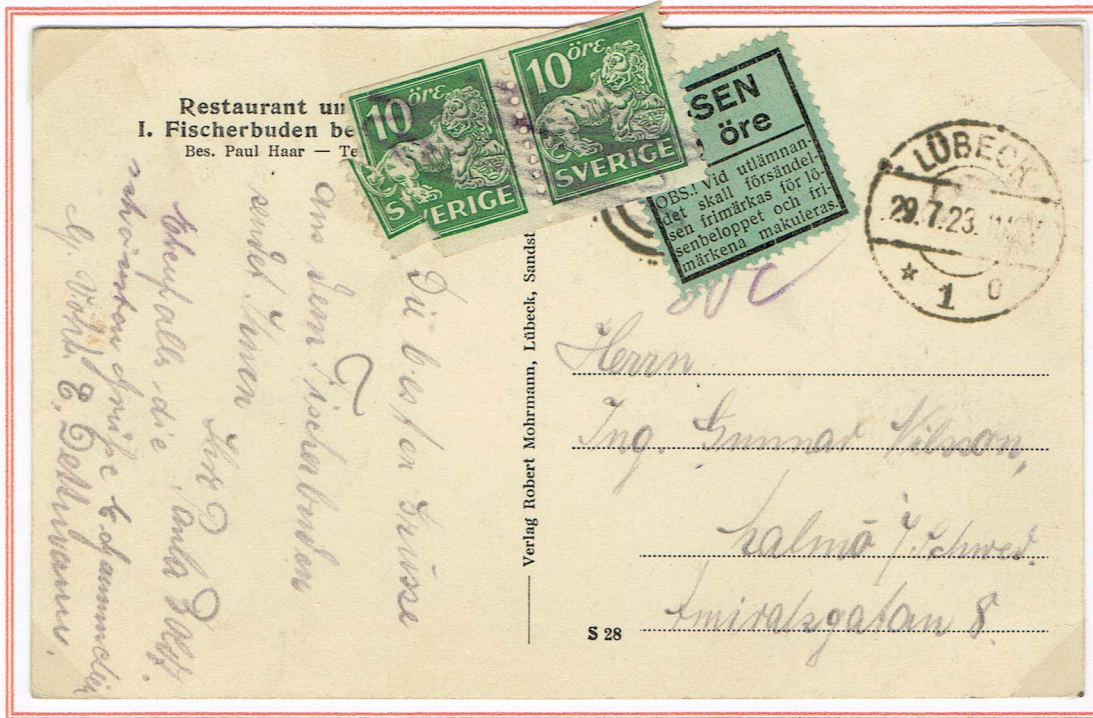 Restaurant un
I. Fischerbuden be
Bes. Paul Haar — Te
10 öre
SVERIGE
10 öre
SVERIGE
SEN
öre
OBS.! Vid utlämnan-
det skall försändel-
sen frimärkas för lö-
senbeloppet och fri-
märkena makuleras.
LÜBECK
29.7.23.
* 1
Die besten Grüsse
aus den Fischerbuden
sendet Ihnen
Ihr
Ebenfalls die
Grüße
E. Dettmann.
Verlag Robert Mohrmann, Lübeck, Sandst
S 28
Herrn
Ing. Gunnar Nilsson,
Malmö / Schwed.
Amiralsgatan 8.